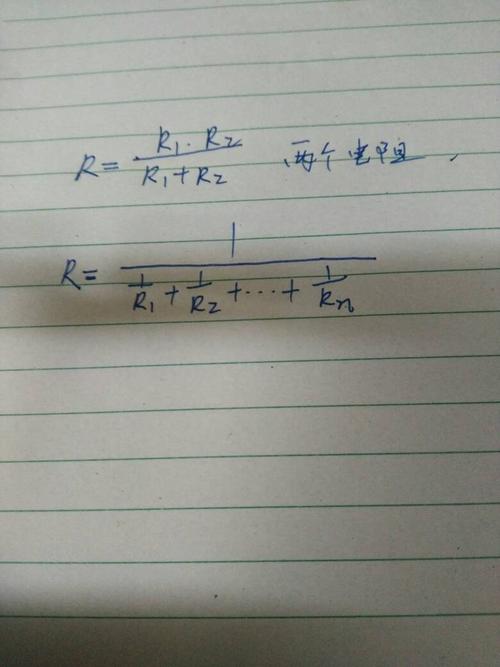 R = \frac{R_1 \cdot R_2}{R_1 + R_2} 两个电阻.
R = \frac{1}{\frac{1}{R_1} + \frac{1}{R_2} + \cdots + \frac{1}{R_n}}